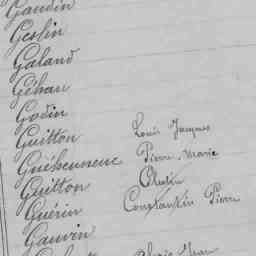 Gaudin
Geslin
Galand
Géhan
Godin
Guitton Louis Jacques
Guéhenneuc Pierre Marie
Guitton
Guérin Constantin Pierre
Gauvin